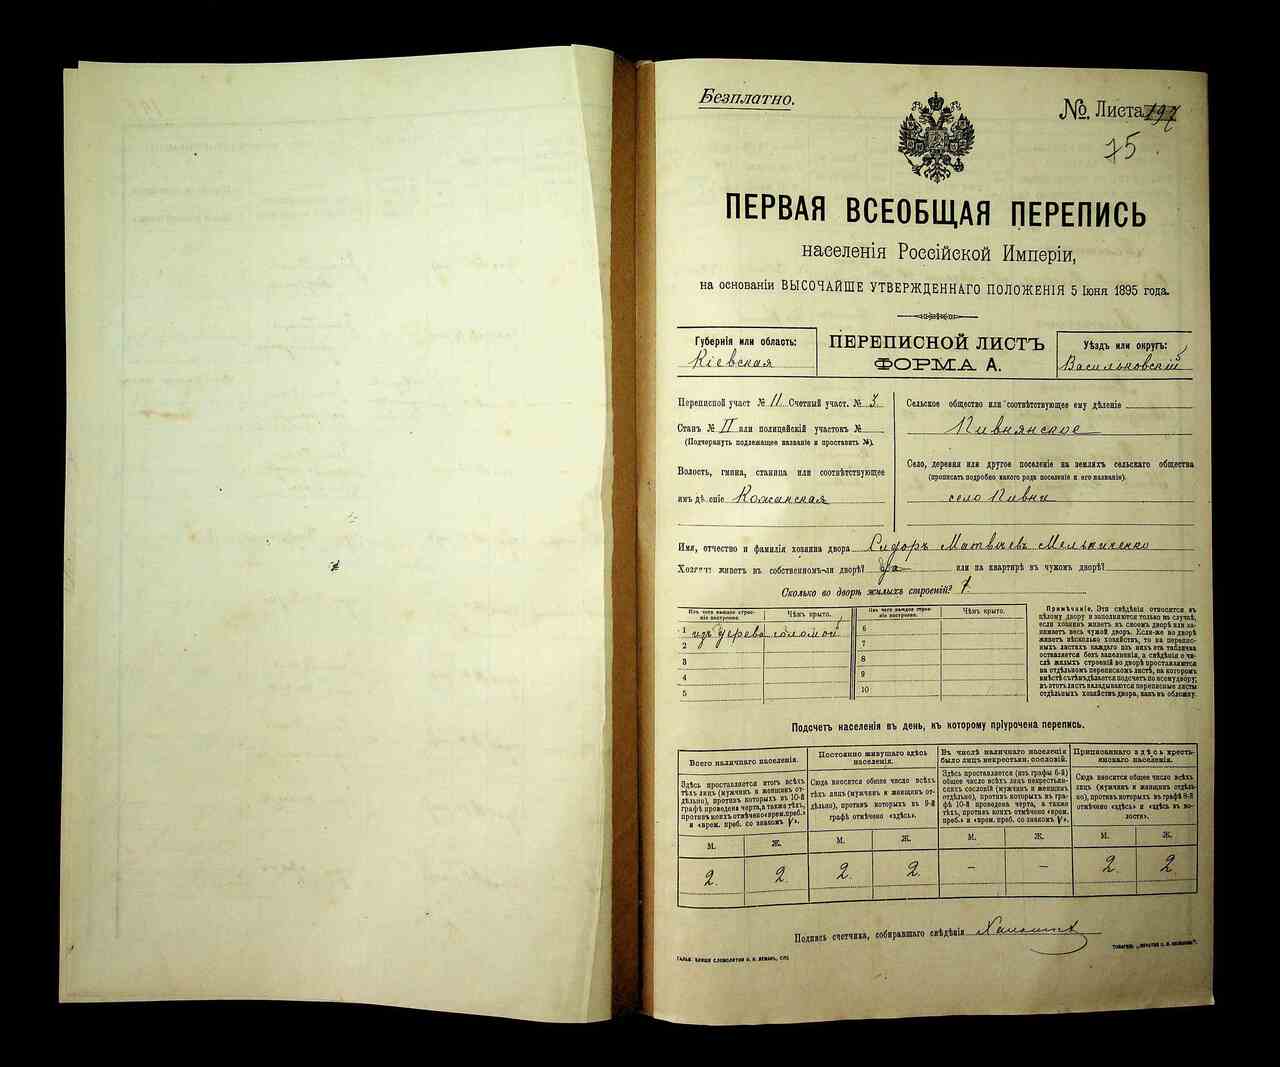 Безплатно.
№. Листа 197
75
ПЕРВАЯ ВСЕОБЩАЯ ПЕРЕПИСЬ
населенія Россійской Имперіи,
на основаніи ВЫСОЧАЙШЕ УТВЕРЖДЕННАГО ПОЛОЖЕНІЯ 5 Іюня 1895 года.
Губернія или область:
Кіевская
ПЕРЕПИСНОЙ ЛИСТЪ
ФОРМА А.
Уѣздъ или округъ:
Васильковскій
Переписной участ № 11 Счетный участ. № 3.
Станъ № II или полицейскій участокъ №
(Подчеркнуть подлежащее названіе и проставить №).
Волость, гмина, станица или соотвѣтствующее
имъ дѣленіе Кожанская
Сельское общество или соотвѣтствующее ему дѣленіе
Пивнянское
Село, деревня или другое поселеніе на земляхъ сельскаго общества
(прописать подробно какого рода поселеніе и его названіе).
село Пивни
Имя, отчество и фамилія хозяина двора Сидоръ Матвѣевъ Мельниченко
Хозяинъ живетъ въ собственномъ-ли дворѣ? да или на квартирѣ въ чужомъ дворѣ?
Сколько во дворѣ жилыхъ строеній? 1.
Изъ чего каждое строеніе построено.
Чѣмъ крыто.
Изъ чего каждое строеніе построено.
Чѣмъ крыто.
1 изъ дерева соломой
2
3
4
5
6
7
8
9
10
Примѣчаніе. Эти свѣдѣнія относятся къ
цѣлому двору и заполняются только въ случаѣ,
если хозяинъ живетъ въ своемъ дворѣ или занимаетъ
весь чужой дворъ. Если-же во дворѣ
живетъ нѣсколько хозяйствъ, то на переписныхъ
листахъ каждаго изъ нихъ эта табличка
оставляется безъ заполненія, а свѣдѣнія о числѣ
жилыхъ строеній во дворѣ проставляются
на отдѣльномъ переписномъ листѣ, на которомъ
вмѣстѣ съ тѣмъ дѣлается подсчетъ по всему двору;
въ этотъ листъ вкладываются переписные листы
отдѣльныхъ хозяйствъ двора, какъ въ обложку.
Подсчетъ населенія въ день, къ которому пріурочена перепись.
Всего наличнаго населенія.
Здѣсь проставляется итогъ всѣхъ
тѣхъ лицъ (мужчинъ и женщинъ отдѣльно),
противъ которыхъ въ 10-й
графѣ проведена черта, а также тѣхъ,
противъ коихъ отмѣчено «врем. преб.»
и «врем. преб. со знакомъ V».
Постоянно живущаго здѣсь
населенія.
Сюда вносится общее число всѣхъ
тѣхъ лицъ (мужчинъ и женщинъ отдѣльно),
противъ которыхъ въ 9-й
графѣ отмѣчено «здѣсь».
Въ числѣ наличнаго населенія
было лицъ некрестьян. сословій.
Здѣсь проставляется (изъ графы 6-й)
общее число всѣхъ лицъ некрестьянскихъ
сословій (мужчинъ и женщинъ
отдѣльно), противъ которыхъ въ графѣ
10-й проведена черта, а также
тѣхъ, противъ коихъ отмѣчено «врем.
преб.» и «врем. преб. со знакомъ V».
Приписаннаго здѣсь крестьянскаго
населенія.
Сюда вносится общее число всѣхъ
лицъ (мужчинъ и женщинъ отдѣльно),
противъ которыхъ въ графѣ 8-й
отмѣчено «здѣсь» и «здѣсь въ волости».
М. Ж. М. Ж. М. Ж. М. Ж.
2. 2. 2. 2. – – 2. 2.
Подпись счетчика, собиравшаго свѣдѣнія